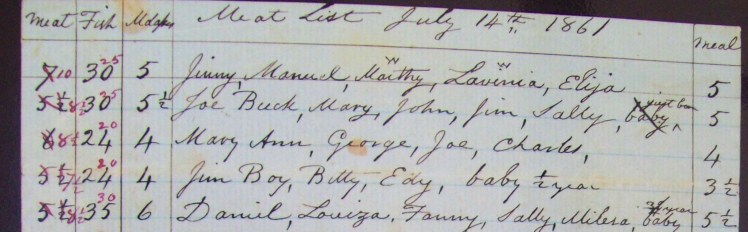 Meat Fish Mdges Meat List July 14th 1861 Meal
7 10 30 25 5 Jinny, Manuel, Maithy, Lavinia, Elija 5
5½ 8½ 30 25 5½ Joe Buck, Mary, John, Jim, Sally, baby, just born 5
6 8½ 24 20 4 Mary Ann, George, Joe, Charles, 4
5½ 7½ 24 20 4 Jim Boy, Billy, Edy, baby ½ year 3½
5½ 8½ 35 30 6 Daniel, Louiza, Fanny, Sally, Milera, baby year 5½